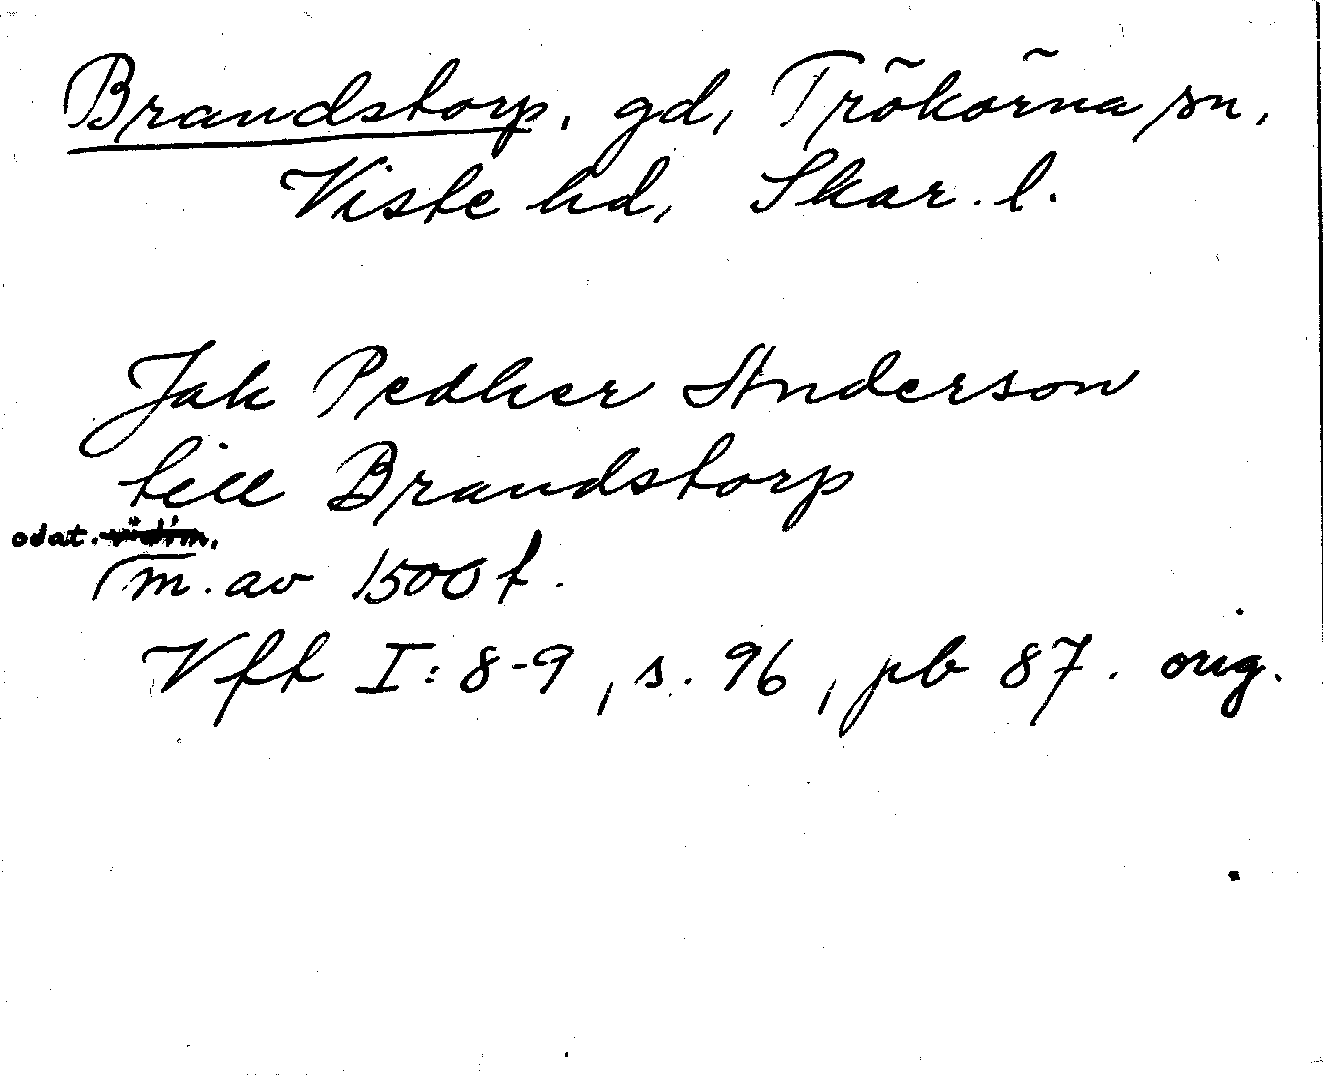 Brandstorp. gd, Trökörna sn,
Viste hd, Skar. l.
Jak Pedher Anderson
till Brandstorp
odat.
m. av 1500 t.
Vft I: 8-9, s. 96, pb 87. orig.